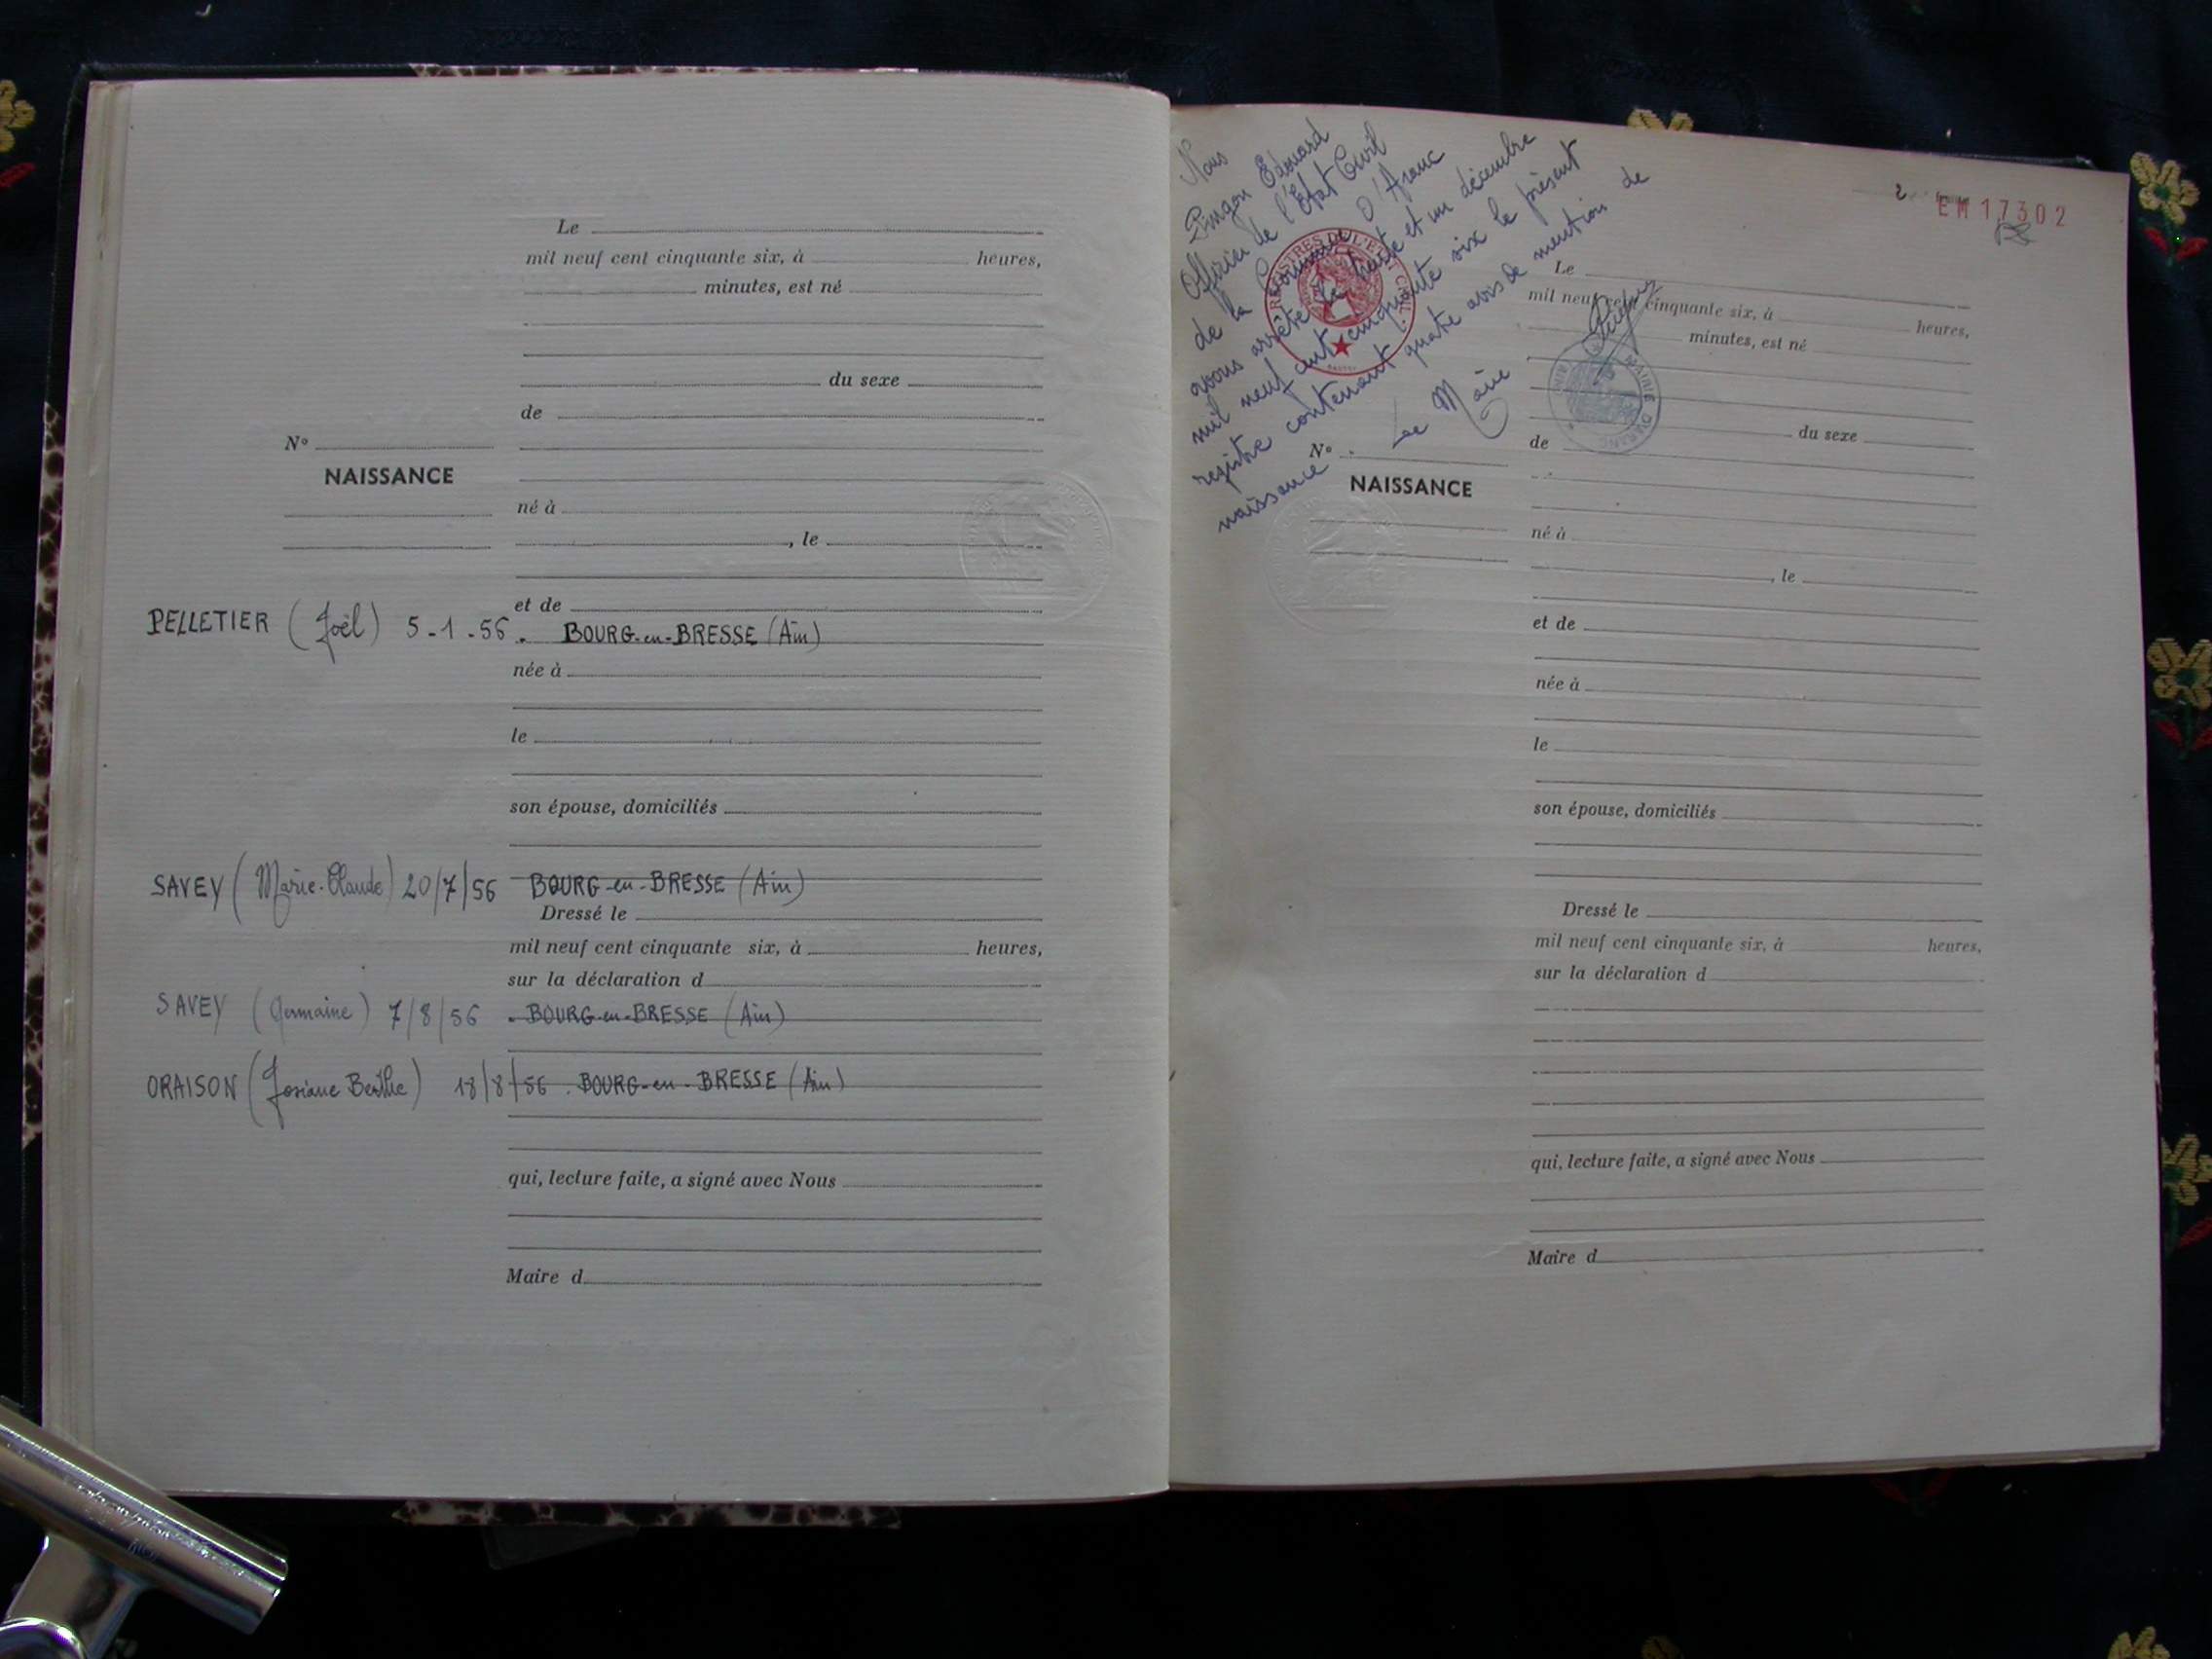 Le
mil neuf cent cinquante six, à heures,
minutes, est né
du sexe
de
N°
NAISSANCE
né à
, le
et de
PELLETIER (Joël) 5-1-56. BOURG-en-BRESSE (Ain)
née à
le
son épouse, domiciliés
SAVEY (Marie-Claude) 20/7/56 BOURG-en-BRESSE (Ain)
Dressé le
mil neuf cent cinquante six, à heures,
sur la déclaration d
SAVEY (Germaine) 7/8/56 - BOURG-en-BRESSE (Ain)
ORAISON (Josiane Berthe) 18/8/56. BOURG-en-BRESSE (Ain)
qui, lecture faite, a signé avec Nous
Maire d
Nous
Pingon Edouard
Officier de l'Etat Civil
de la Commune D'Aranc
avons arrêté le trente et un décembre
mil neuf cent cinquante six le présent
registre contenant quatre avis de mention de
naissance.
Le Maire
2
EM17302
Le
mil neuf cent cinquante six, à heures,
minutes, est né
MAIRIE D'ARANC
du sexe
de
N°
NAISSANCE
né à
, le
et de
née à
le
son épouse, domiciliés
Dressé le
mil neuf cent cinquante six, à heures,
sur la déclaration d
qui, lecture faite, a signé avec Nous
Maire d